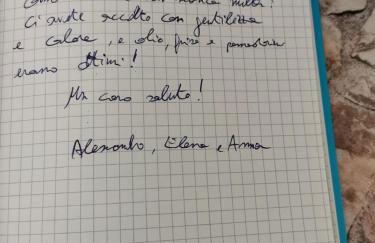 ci avete accolto con gentilezza
e calore, e olio, frise e pomodori
erano ottimi!
Un caro saluto!
Alessandro, Elena e Anna